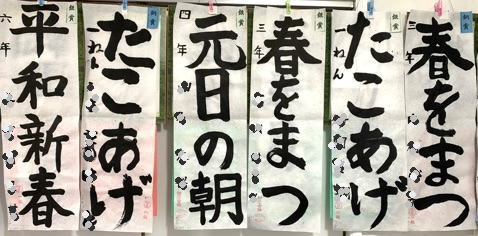 春をまつ
三年
銀賞
たこあげ
一ねん
春をまつ
三年
銀賞
元日の朝
四年
銅賞
たこあげ
一ねん
銀賞
平和新春
六年